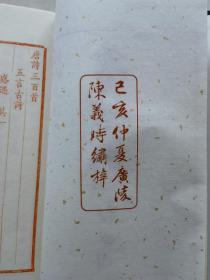 己亥仲夏廣陵
陳義時繡梓
唐詩三百首
五言古詩
感遇